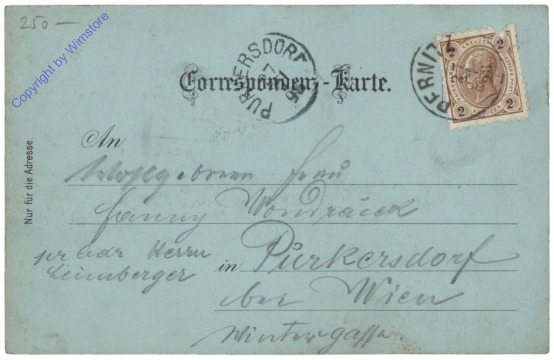 250 —
Copyright by Wimstore
PURKERSDORF
PERNITZ
2 2
2 2
Correspondenz-Karte.
Nur für die Adresse.
An
Wohlgeboren Frau
Fanny Vondráček
per adr Herrn
Leimberger
in Purkersdorf
bei Wien
Wintergasse